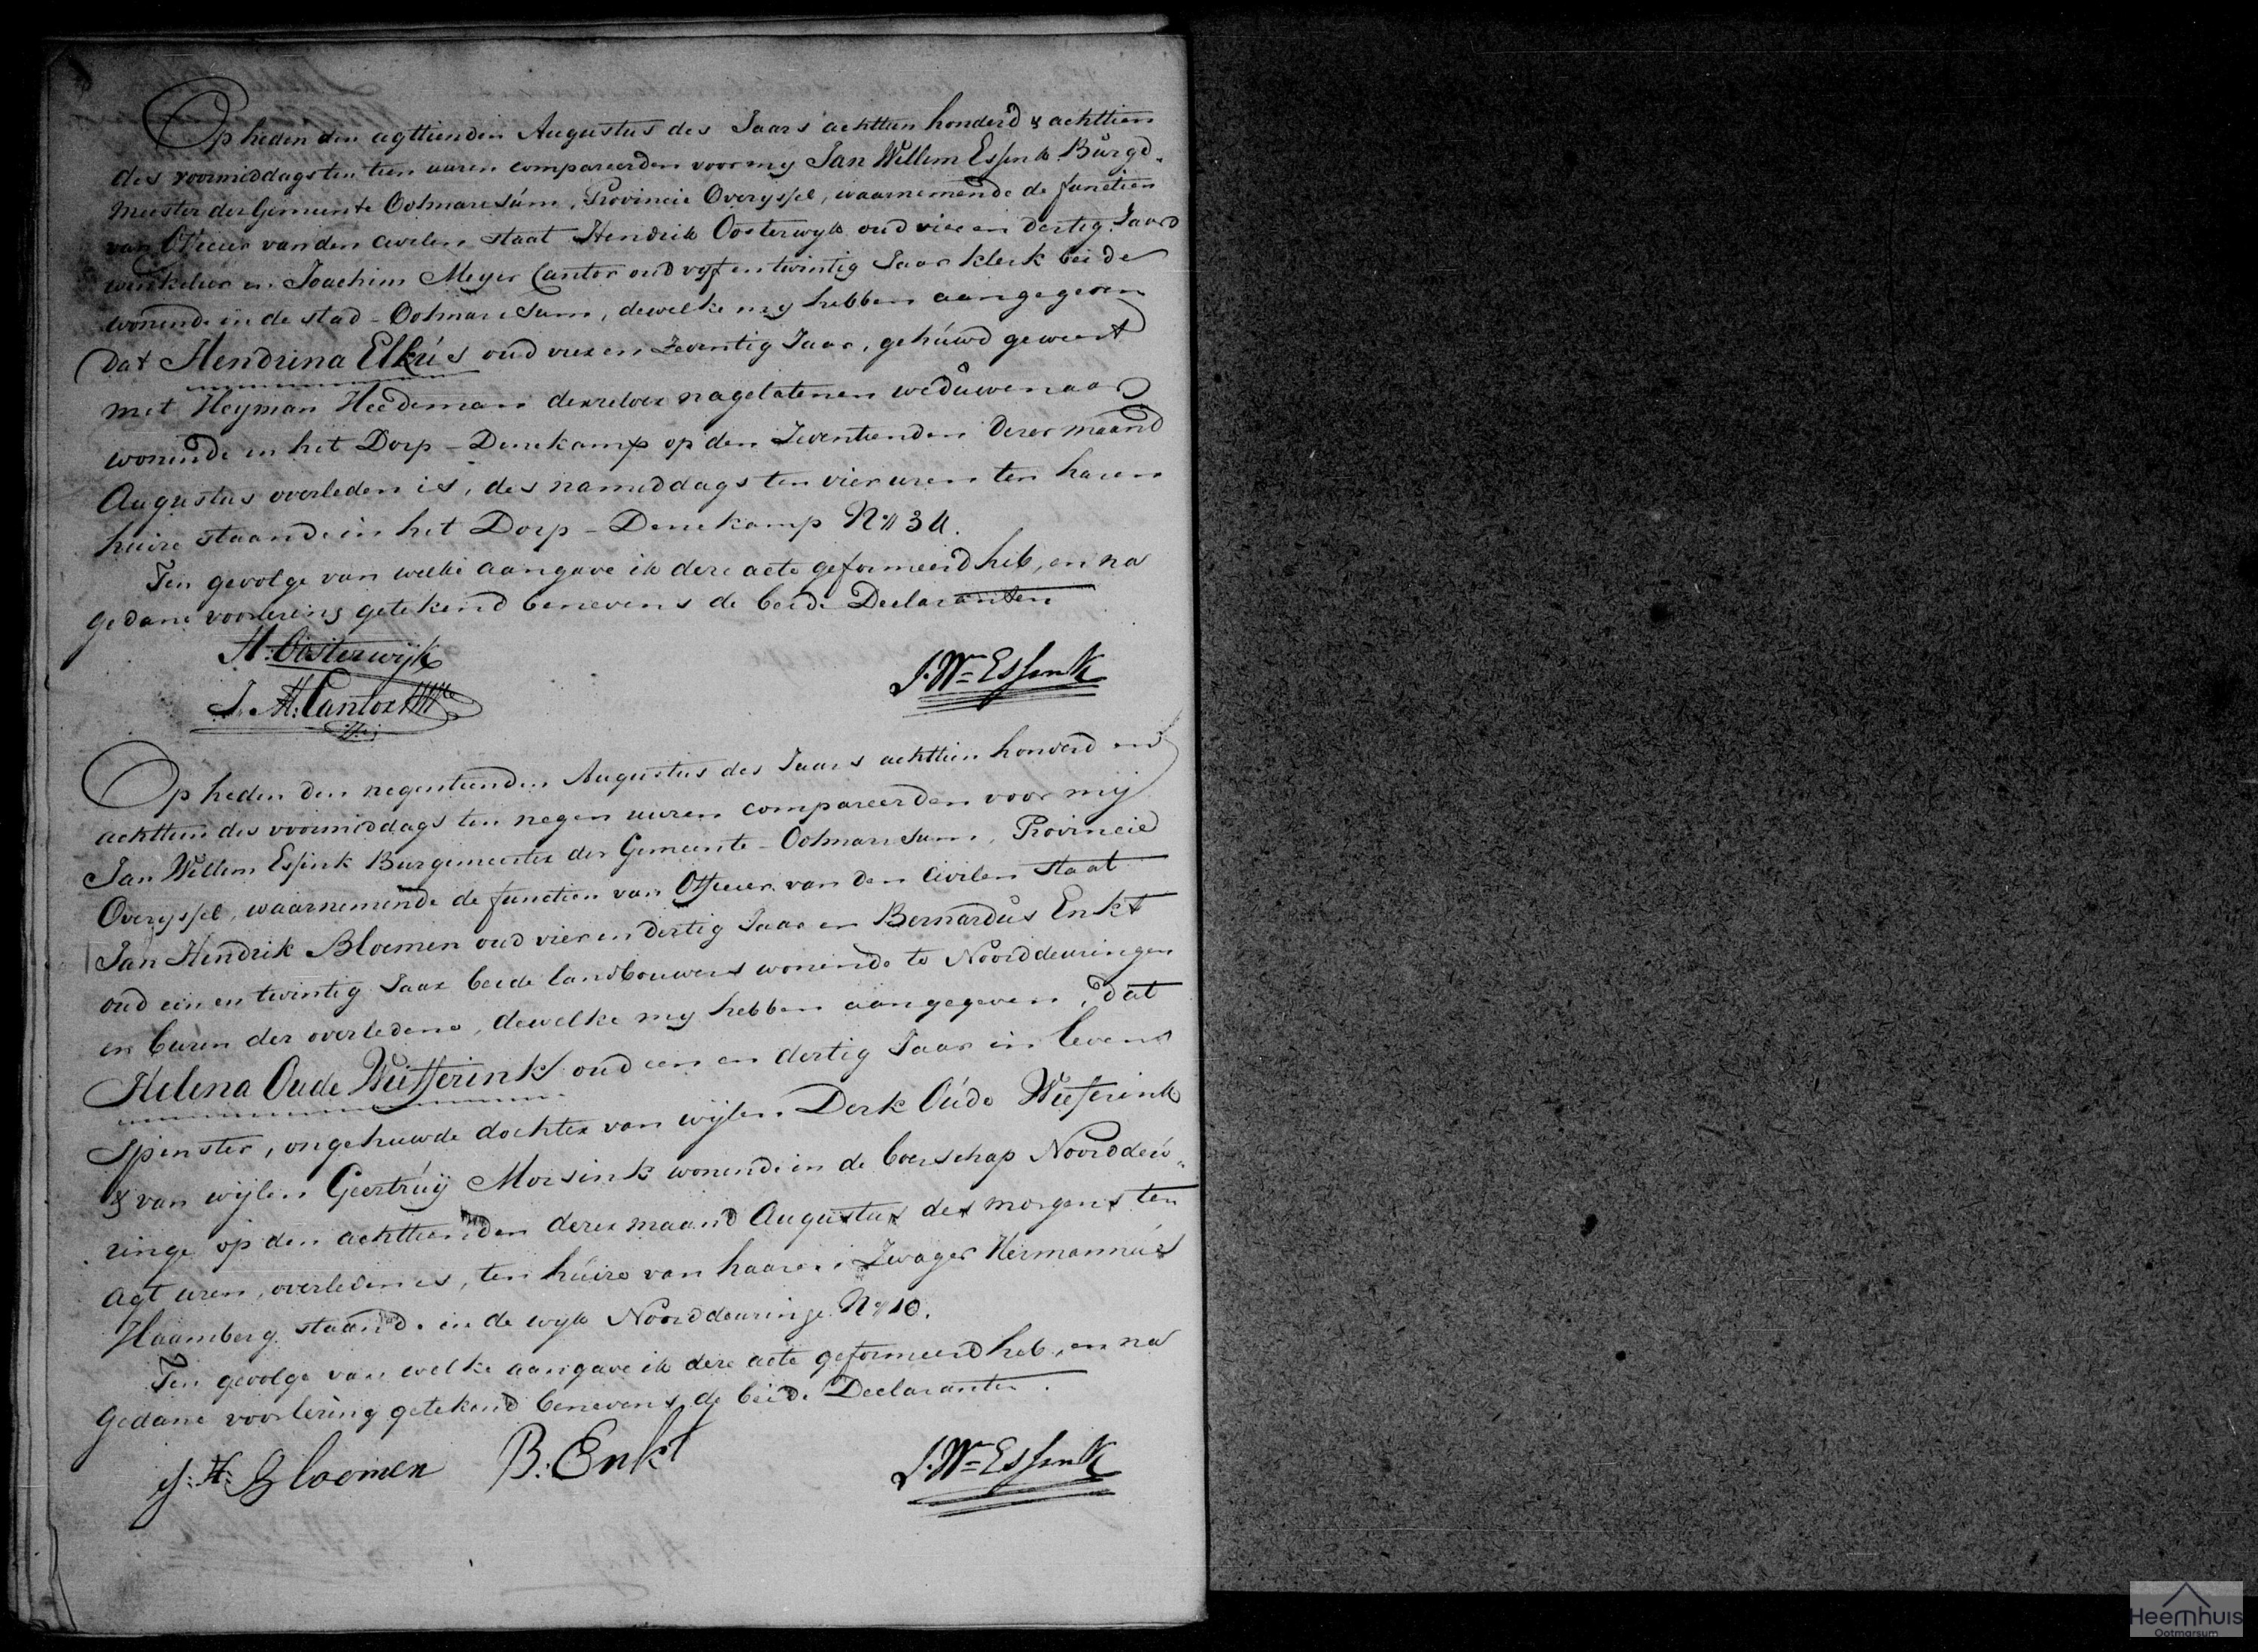 Op heden den agttienden Augustus des Jaars achttien honderd & achttien
des voormiddags ten tien uuren compareerden voor my Jan Willem Essink Burge-
meester der Gemeente Ootmarssum, Provincie Overyssel, waarnemende de functien
van Officier van den civielen staat Hendrik Oosterwyk oud vier en dertig Jaar
winkelier en Joachim Meyer Cantor oud vyf en twintig Jaar klerk beide
wonende in de stad Ootmarssum, dewelke my hebben aangegeven
dat Hendrina Elkús oud vier en zeventig Jaar, gehuwd geweest
met Heyman Heedeman derzelver nagelatenen weduwenaar
wonende in het Dorp Denekamp op den Zeventienden dezer maand
Augustus overleden is, des namiddags ten vier uren ten haren
huize staande in het Dorp Denekamp N° 34.
Ten gevolge van welke aangave ik deze acte geformeerd heb, en na
gedane voorlezing getekend benevens de beide Declaranten
H: Oosterwijk
J. M: Cantor
J. Wm Essink
Op heden den negentienden Augustus des Jaars achttien honderd en
achttien des voormiddags ten negen uuren compareerden voor mij
Jan Willem Essink Burgemeester der Gemeente Ootmarssum, Provincie
Overyssel, waarnemende de functien van Officier van den Civilen staat
Jan Hendrik Bloemen oud vier en dertig Jaar en Bernardus Enkt
oud een en twintig Jaar beide landbouwers wonende te Noorddeuringen
en buren der overledene, dewelke my hebben aangegeven, dat
Helena Oude Weifferink oud een en dertig Jaar in leven
spinster, ongehuwde dochter van wijlen Derk Oude Weiferink
& van wijlen Geertruij Morsink wonende in de boerschap Noorddeu-
ringe op den achttienden dezer maand Augustus des morgens ten
agt uren, overleden is, ten huize van haaren Zwager Hermannus
Haamberg staande in de wyk Noorddeuringe N° 10.
Ten gevolge van welke aangave ik deze acte geformeerd heb, en na
gedane voorlezing getekend benevens de beide Declaranten.
J: H: Bloomen B: Enkt
J. Wm Essink
Heemhuis
Ootmarsum